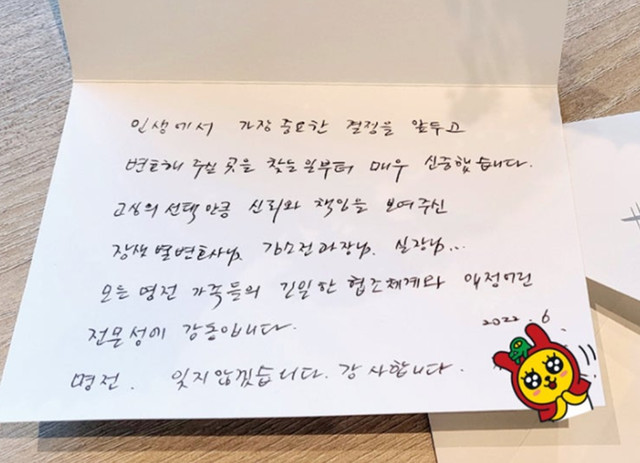 인생에서 가장 중요한 결정을 앞두고
변호해 주실 곳을 찾는 일부터 매우 신중했습니다.
고심의 선택만큼 신뢰와 책임을 보여주신
장샛별변호사님, 김소전과장님, 실장님...
모든 명전 가족들의 긴밀한 협조체계와 애정어린
전문성에 감동입니다.
2022. 6.
명전. 잊지않겠습니다. 감사합니다.